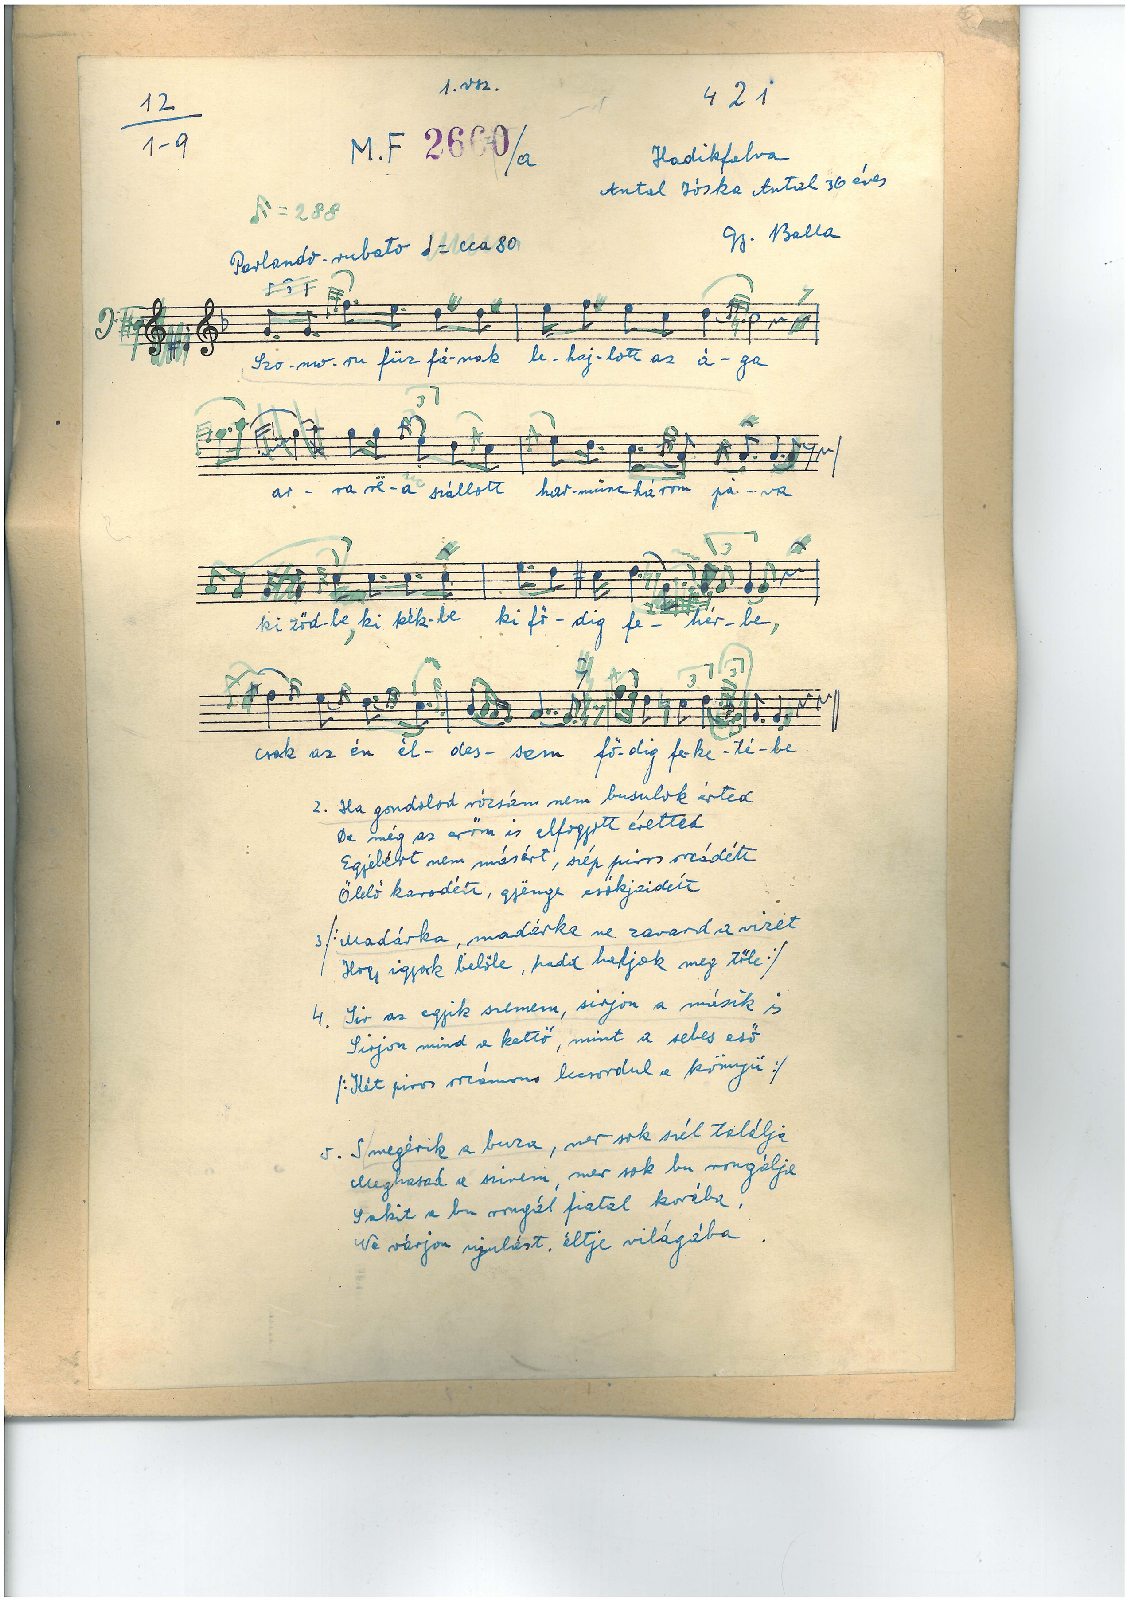 1. vsz.
12
1-9
421
M.F 2660/a
Hadikfalva
Antal Jóska Antal 36 éves
♪ = 288
Gy. Balla
Parlando-rubato ♩= cca 80
Szo-mo-ru fűz-fá-nak le-haj-lott az á-ga
ar-ra rë-á szállott har-minc-három pá-va
ki ződ-be, ki kék-be ki fö-dig fe-hér-be,
csak az én él-des-sem fö-dig fe-ke-té-be
2. Ha gondolod rózsám nem busulok érted
De még az erőm is elfogyott éretted
Egyébért nem másért, szép piros orcádétt
Ölelő karodétt, gyënge csókjaidétt
3 /: Madárka, madárka ne zavard a vizet
Hogy igyak belőle, hadjak meg tőle :/
4. Sir az egyik szemem, sirjon a másik is
Sirjon mind a kettő, mint a sebes eső
/: Két piros orcámra lecsordul a könnyü :/
5. S megérik a buza, mer sok szél találja
Meghasad a szivem, mer sok bu rongálja
Sakit a bu rongál fiatal korába,
Ne várjon ujulást, éltje világába.